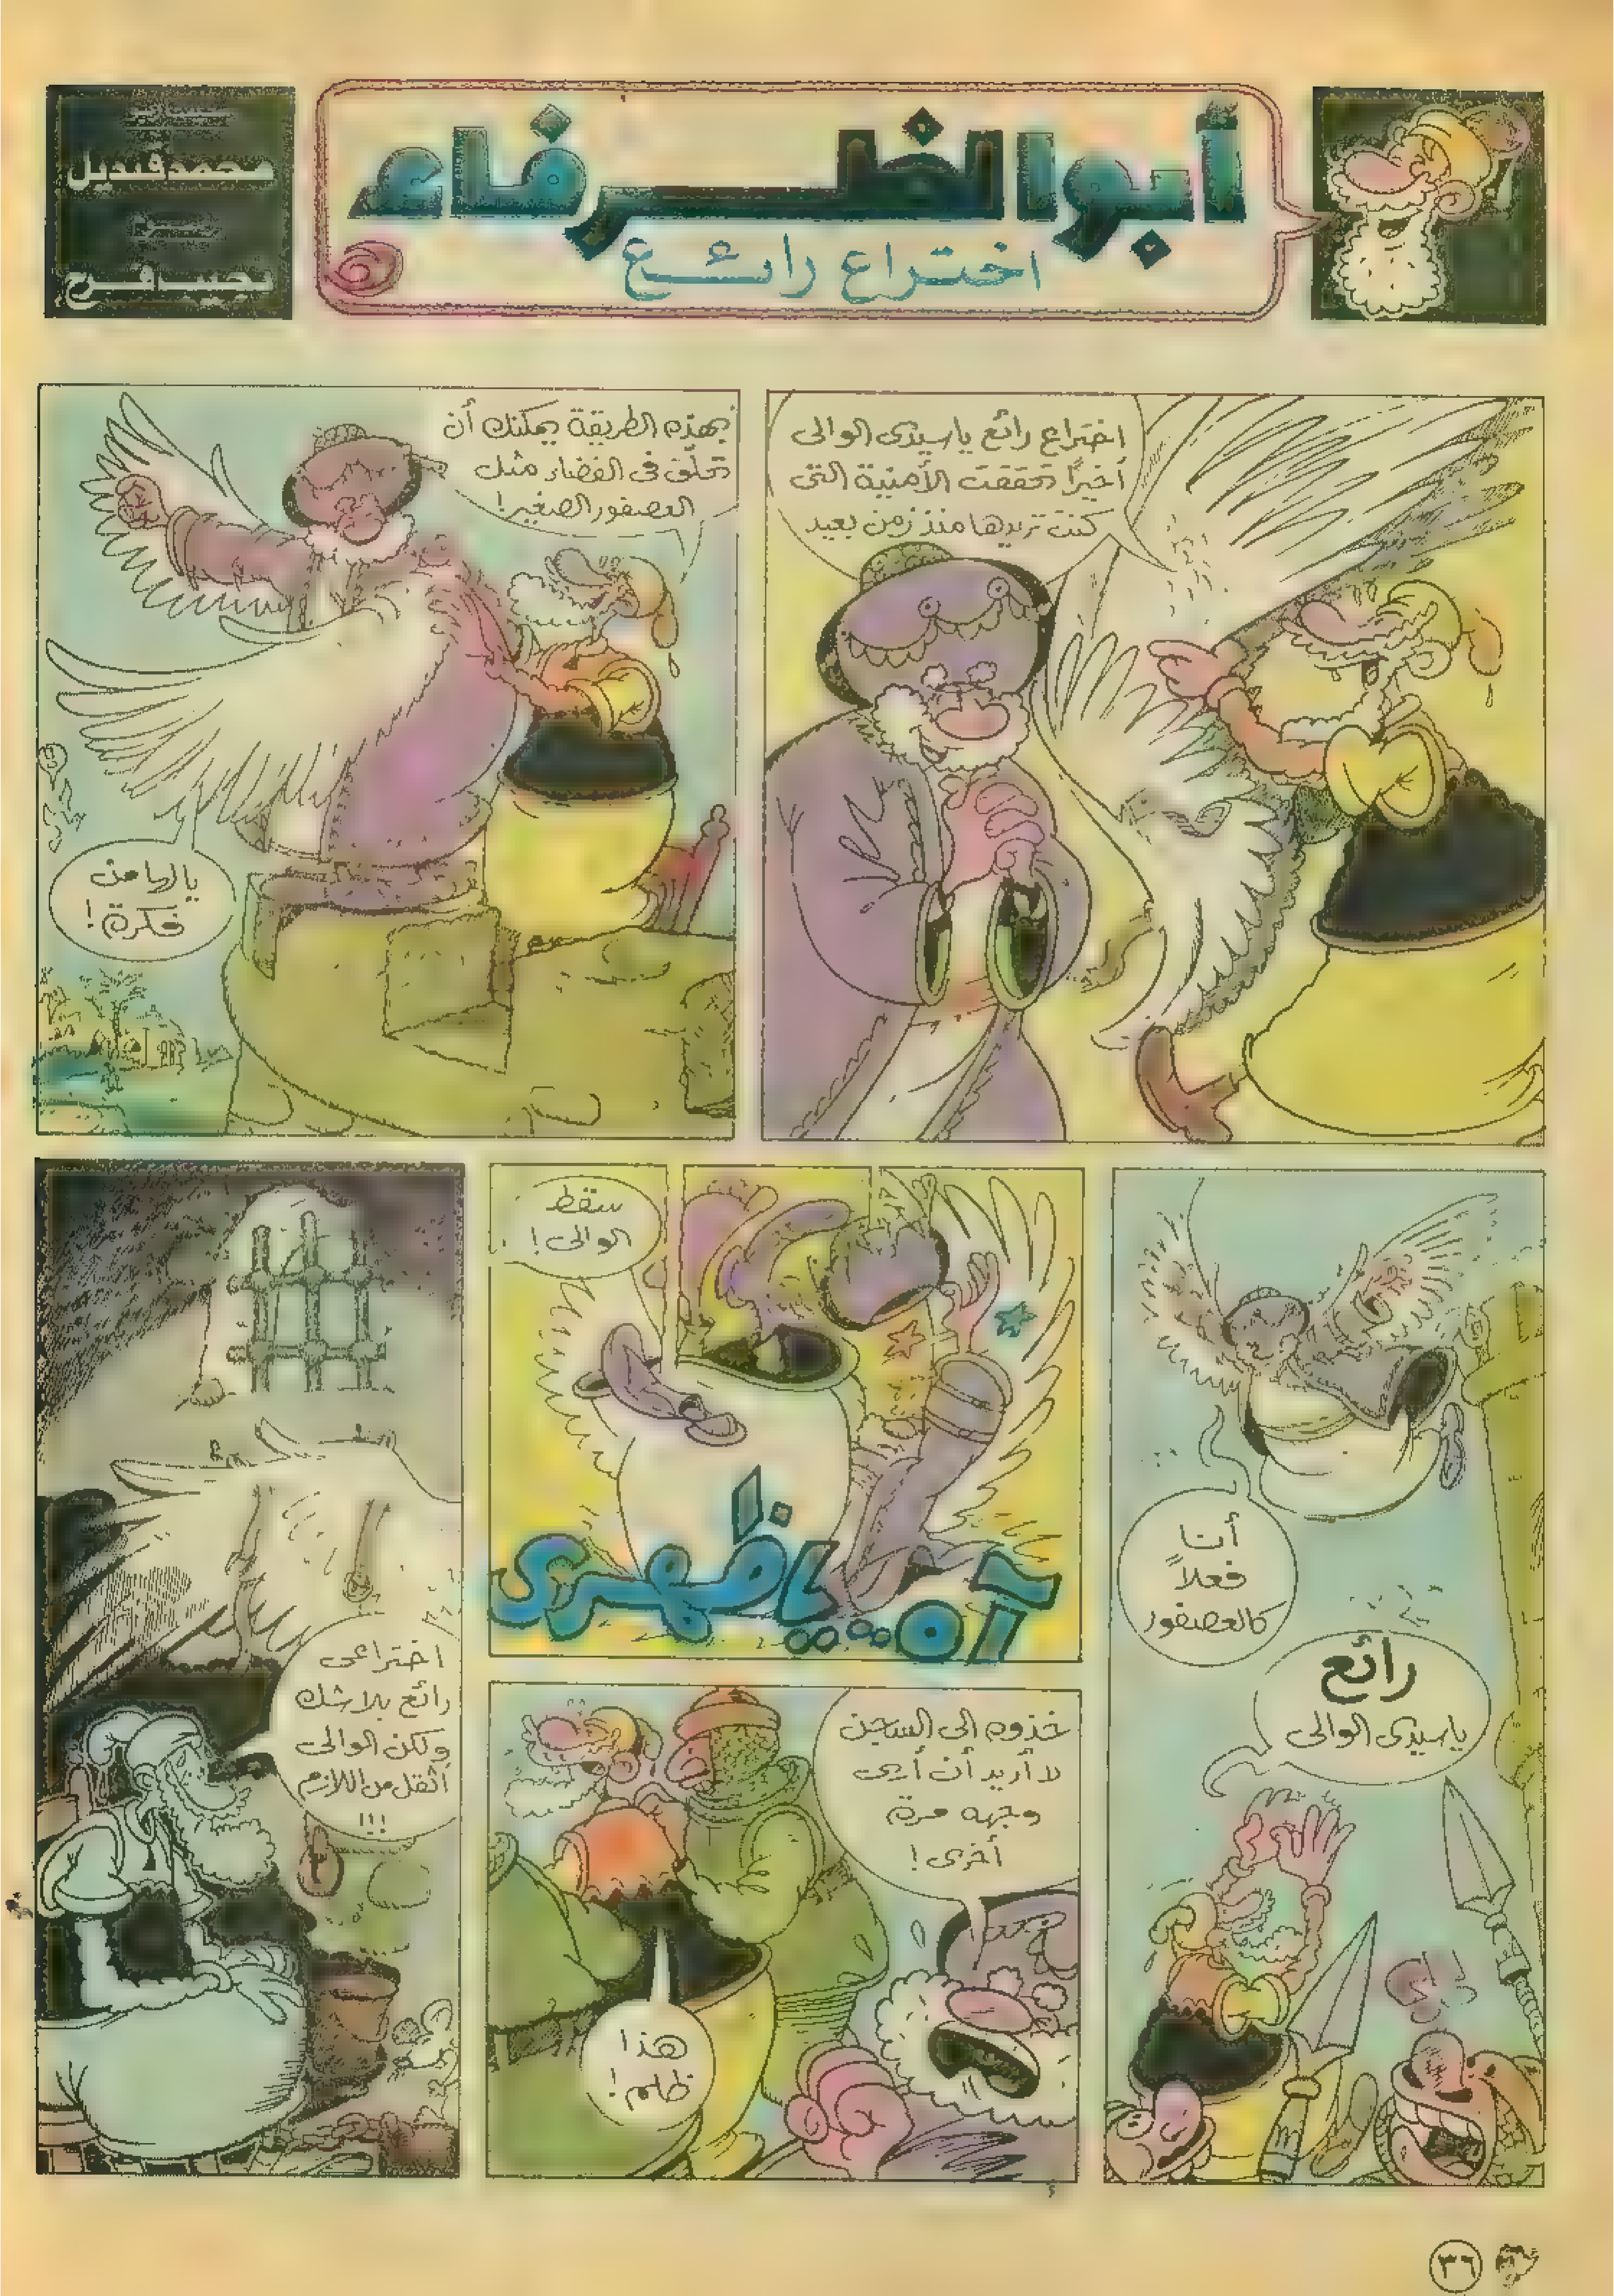 أبو الظرفاء
اختراع رائع
محمد قنديل
نجيب فرح
اختراع رائع ياسيدى الوالى
أخيرًا تحققت الأمنية التى
كنت تريدها منذ زمن بعيد
بهذه الطريقة يمكنك أن
تحلّق فى الفضاء مثل
العصفور الصغير!
يالها من
فكرة!
أنا
فعلاً
كالعصفور
رائع
ياسيدى الوالى
سقط
الوالى!
آه... يا ظهرى!
خذوه الى السجن
لا أريد أن أرى
وجهه مرة
أخرى!
هذا
ظلم!
اختراعى
رائع بلا شك
ولكن الوالى
أثقل من اللازم
!!!
٣٦